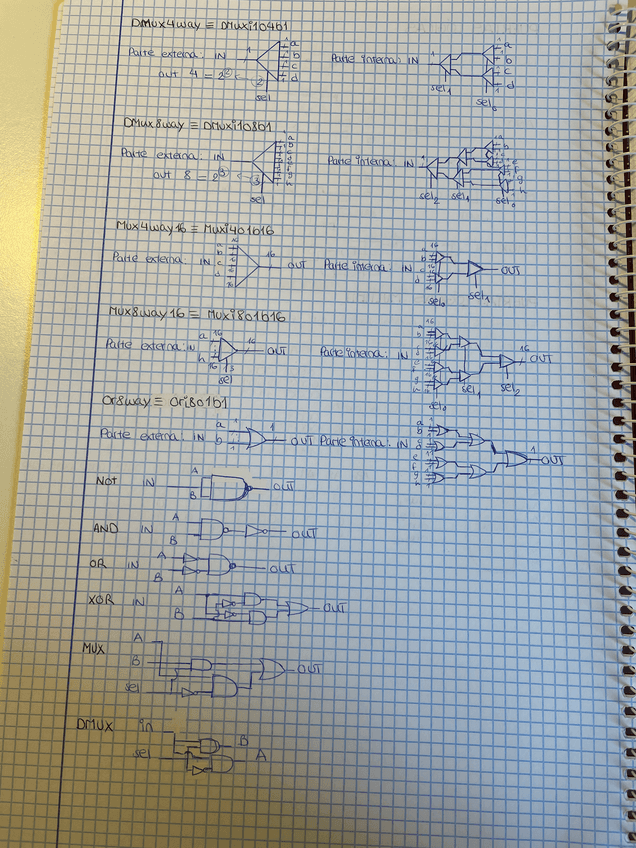 DMux4way ≡ DMuxi1o4b1
Parte externa: IN 1 a b c d
out 4 = 2² ← 2 sel
Parte interna: IN 1 a b c d
sel₁ sel₀
DMux8way ≡ DMuxi1o8b1
Parte externa: IN
out 8 = 2³ ← 3 sel
Parte interna: IN 1
sel₂ sel₁ sel₀
Mux4way16 ≡ Muxi4o1b16
Parte externa: IN a b c d 16 OUT
Parte interna: IN a b c d 16 OUT
sel₀ sel₁
Mux8way16 ≡ Muxi8o1b16
Parte externa: IN a h 16 16 16 OUT
sel
Parte interna: IN 16 OUT
sel₀ sel₁ sel₂
Or8way ≡ Ori8o1b1
Parte externa: IN a b 1 OUT
Parte interna: IN a b e f g h 1 OUT
NOT IN A B OUT
AND IN A B OUT
OR IN A B OUT
XOR IN A B OUT
MUX A B sel OUT
DMUX in sel B A